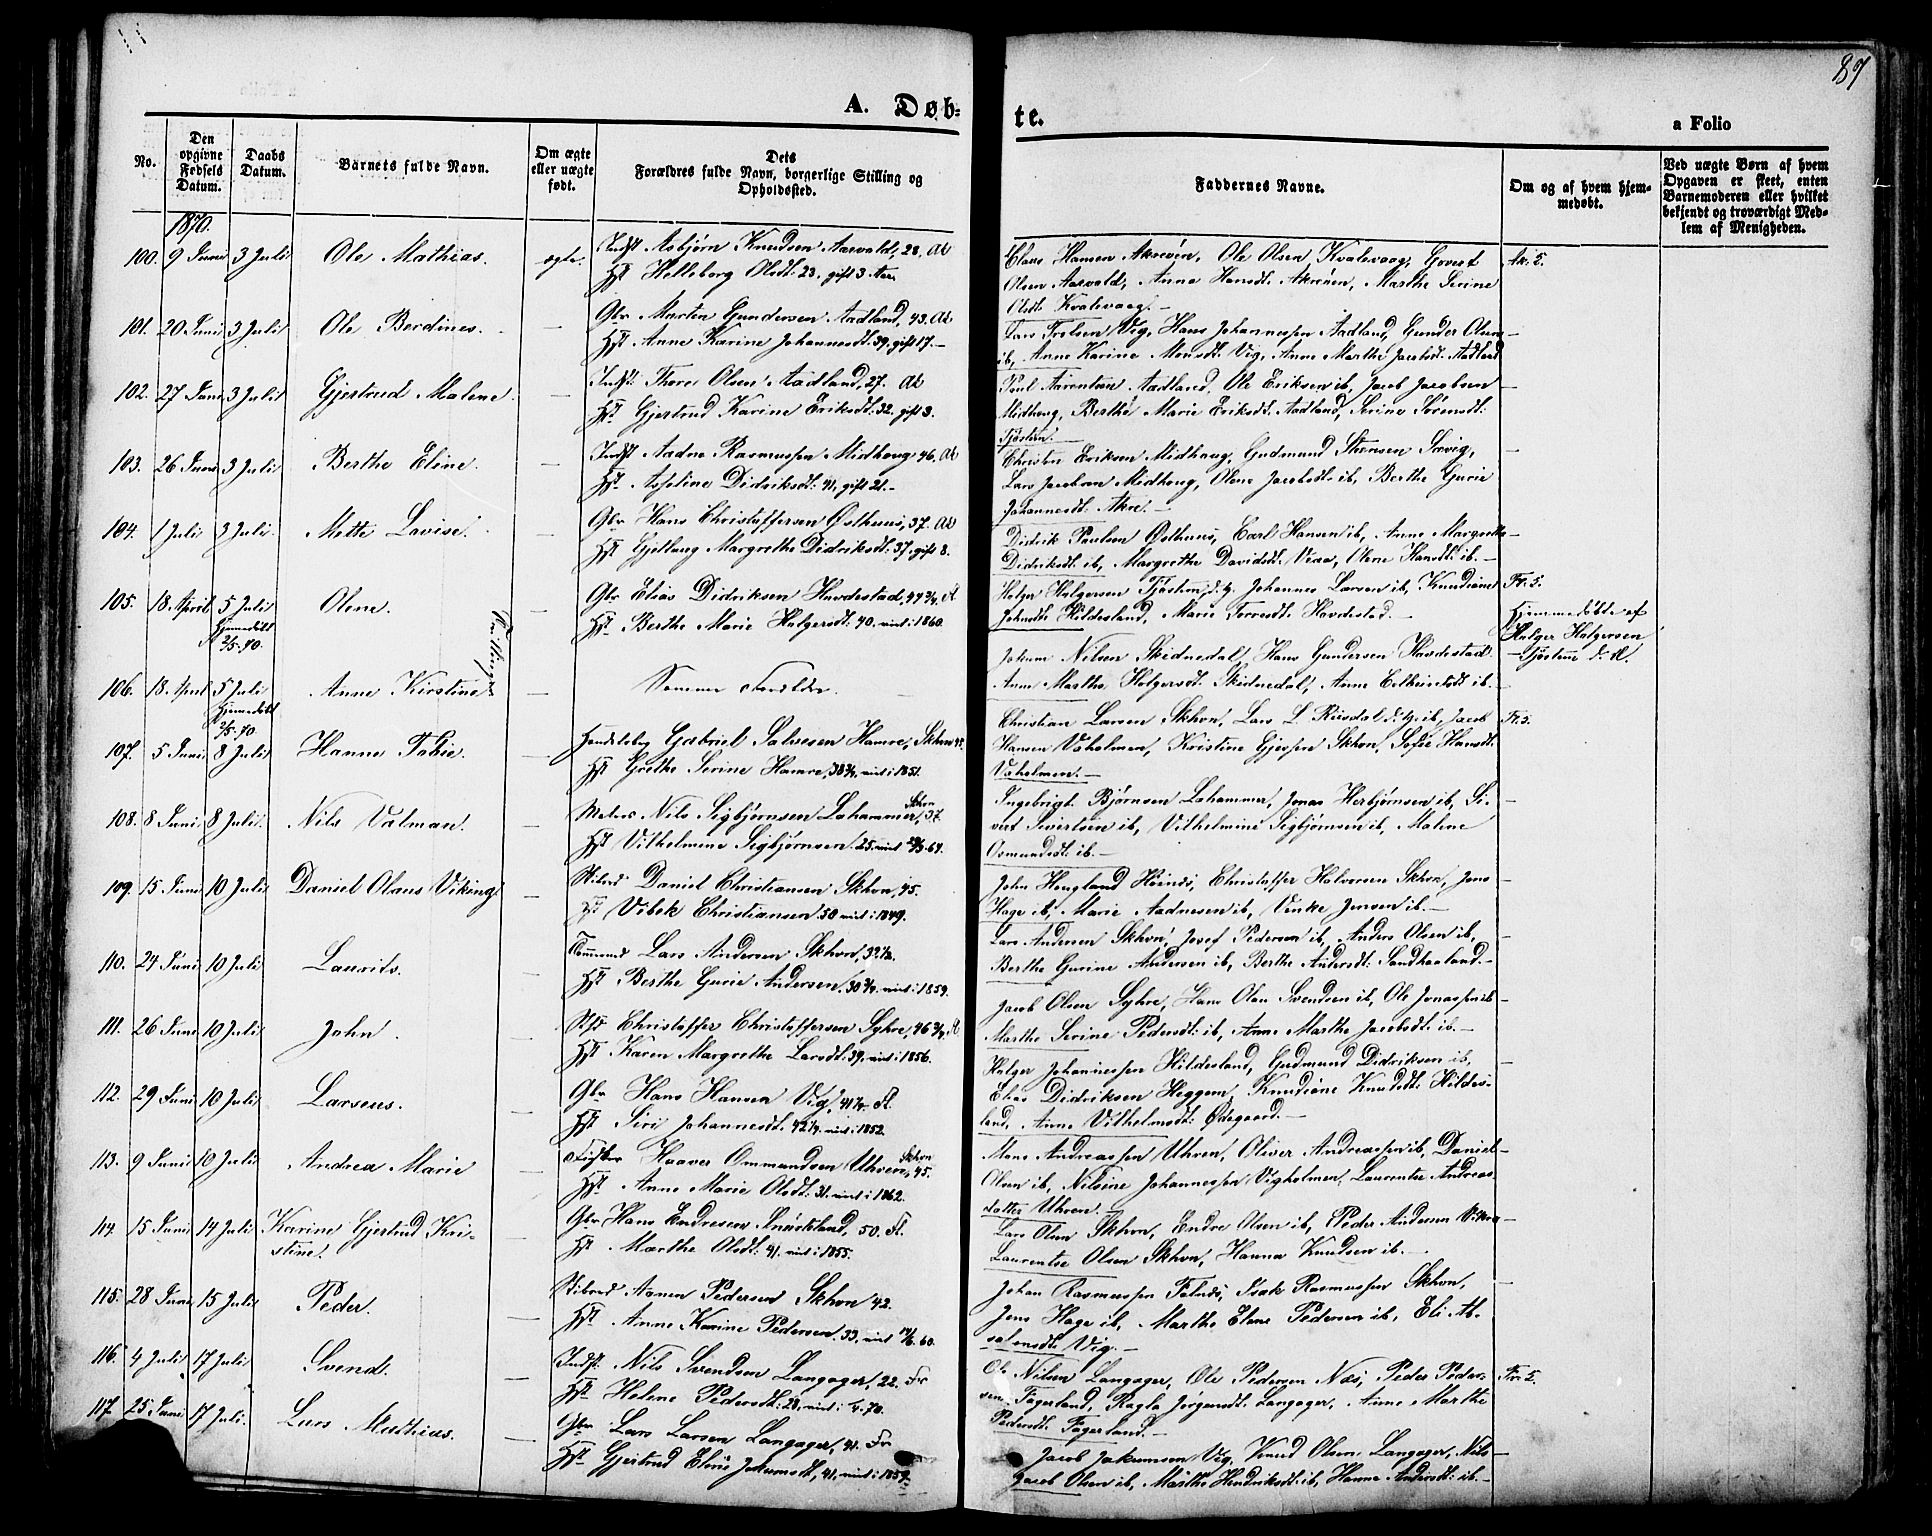 87
A. Døb-
te.
a Folio
No.
Den opgivne Fødsels Datum.
Daabs Datum.
Barnets fulde Navn.
Om ægte eller uægte født.
Dets Forældres fulde Navn, borgerlige Stilling og Opholdssted.
Faddernes Navne.
Om og af hvem hjemmedøbt.
Ved uægte Børn af hvem Opgaven er skeet, enten Barnemoderen eller hvilket bekjendt og troværdigt Medlem af Menigheden.
1870.
100. 9 Juni 3 Juli Ole Mathias. ægte. Indst Asbjørn Knudsen Aasvald, 28. Ak
Hst Helleborg Olsdt: 23. gift 3. Aar
Claus Hansen Akreøen, Ole Olsen Kvalevaag, Govert
Olsen Aasvald, Anna Hansdt. Akreøen, Marthe Serine
Olsdt. Kvalevaag.
101. 20 Juni 3 Juli Ole Berdines. — Gbr Morten Gundersen Aadland, 43. Ak
Hst Anne Karine Johannesdt: 39, gift 17.
Lars Trolsen Vig, Hans Johannessen Aadland, Gunder Olsen
ib, Anne Karine Monsdt. Vig, Anne Marthe Jacobsdt. Aadland
102. 27 Juni 3 Juli Gjertrud Malene. — Indst: Thore Olsen Aadland, 27. Ak
Hst Gjertrud Karine Eriksdt: 32. gift 3.
Poul Aarentsen Aadland, Ole Eriksen ib, Jacob Jacobsen
Midhoug, Berthe Marie Eriksdt. Aadland, Serine Sørensdt:
Tjøstem.
103. 26 Juni 3 Juli Berthe Eline. — Indst Aadne Rasmussen Midhoug 46. Ak
Hst Aseline Didriksdt: 41, gift 21.
Christen Eriksen Midhoug, Gudmund Størnsen Sævig,
Lars Jacobsen Midhoug, Olene Jacobsdt: ib, Berthe Gurie
Johannesdt: Akre.
104. 1 Juli 3 Juli. Mette Lovise. — Gbr Hans Christoffersen Østhuus, 37. Ak
Hst Gjellaug Margrethe Didriksdt: 37, gift 8.
Didrik Paulsen Østhuus, Carl Hansen ib, Anne Margrethe
Didriksdt: ib, Margrethe Davidsdt. Veaa, Olene Hansdt: ib.
105. 18. April 5 Juli Olene. — Gbr Elias Didriksen Havdestad, 44 3/4. Fl
Hjemmedøbt 2/5. 70.
Hst Berthe Marie Holgersdt: 40. viet i 1860.
Holger Holgersen Tjøstem, Johannes Larsen ib, Knudiane
Johnsdt. Hildesland, Marie Torresdt. Havdestad.
Hjemmedøbte af
Holger Holgersen
Tjøstem d. æl.
106. 18. April 5 Juli Anne Kirstine — Samme Forældre.
Hjemmedøbt 2/5. 70
Tvillinger
Johan Nilsen Skidnedal, Hans Gundersen Havdestad.
Anne Marthe Holgersdt. Skidnedal, Anne
107. 5 Juni 8 Juli Hanne Tobie. — Handelsbg Gabriel Salvesen Hamre, Skhvn 45.
Hst Grethe Serine Hamre, 38 3/4, viet i 1851.
Christian Larsen Skhvn, Lars L. Risdal
Hansen Vaholmen, Kristine Gjessen Skhvn, Sofie Hansdt.
Vaholmen.
108. 8 Juni 8 Juli. Nils Valman. — Nils Sigbjørnsen Lahammer, Skhvn 37.
Hst Vilhelmine Sigbjørnsen. 25.
Ingebrigt Bjørnsen Lahammer, Jonas Herbjørnsen ib, Si-
vert Sivertsen ib, Vilhelmine Sigbjørnsen ib, Malene
Osmundsdt: ib.
109. 15 Juni 10 Juli Daniel Olaus Viking — Daniel Christiansen Skhvn, 45.
Hst Vibek Christiansen 50 viet i 1849.
John Hougland Høines, Christoffer Halvorsen Skhvn, Jens
Hage ib, Marie Aadnesen ib, Venke Jensen ib.
110. 24 Juni 10 Juli Laurits. — Lars Andersen Skhvn, 32 1/2.
Hst Berthe Gurie Andersen. 30 3/4. viet i 1859.
Lars Andersen Skhvn, Josef Pedersen ib, Anders Olsen ib,
Berthe Gurine Andersen ib, Berthe Andersdt: Sandhaaland.
111. 26 Juni 10 Juli John. — Christoffer Christoffersen Syhre, 46 3/4, Fl
Hst Karen Margrethe Larsdt: 39. viet i 1856.
Jacob Olsen Syhre, Hans Olan Svendsen ib, Ole Jonassen ib
Marthe Serine Pedersdt: ib, Anne Marthe Jacobsdt: ib.
112. 29 Juni 10 Juli Larseus. — Gbr Hans Hansen Vig, 41 1/2. Fl.
Hst Siri Johannesdt. 42 1/4. viet i 1852.
Holger Johannessen Hildesland, Gudmund Didriksen ib,
Elias Didriksen Heggem, Knudiane Knudsdt: Hildes-
land, Anne Vilhelmsdt: Ødegaard.
113. 9 Juni 10 Juli Andrea Marie — Haaver Ommundsen Uhven, Skhvn 45.
Hst Anne Marie Olsdt: 31. viet i 1862.
Mons Andreassen Uhven, Oliver Andreassen ib, Daniel
Olsen ib, Nilsine Johannessen Vigholmen, Laurentse Andreas-
datter Uhven.
114. 15 Juni 14 Juli Karine Gjertrud Kri-
stine. — Gbr Hans Endresen Snørteland, 50. Fl.
Hst Marthe Olsdt: 41. viet i 1855.
Lars Olsen Skhvn, Endre Olsen ib, Peder Andersen
Laurentse Olsen Skhvn, Hanna Knudsen ib.
115. 28 Juni 15 Juli Peder. — Aanen Pedersen Skhvn 42.
Hst Anne Karine Pedersen. 33, viet
Johan Rasmussen Falnæs, Isak Rasmussen Skhvn,
Jens Hage ib, Marthe Elene Pedersen ib, Eli Ab-
salonsdt: Vig.
116. 4 Juli 17 Juli Svend. — Indst: Nils Svendsen Langager, 22. Fr
Hst Helene Pedersdt: 23, viet i
Ole Nilsen Langager, Ole Pedersen Næs, Peder Peder-
sen Fagerland, Ragla Jørgensdt: Langager, Anne Marthe
Pedersdt: Fagerland.
117. 25 Juni 17 Juli. Lars Mathias. — Gbr Lars Larsen Langager, 41. Fr
Hst Gjertrud Eline Jakumsdt, 41, viet i 1857.
Jacob Jakumsen Vig, Knud Olsen Langager, Nils
Jacob Olsen ib, Marthe Hendriksdt: ib, Hanne Andersdt: ib.